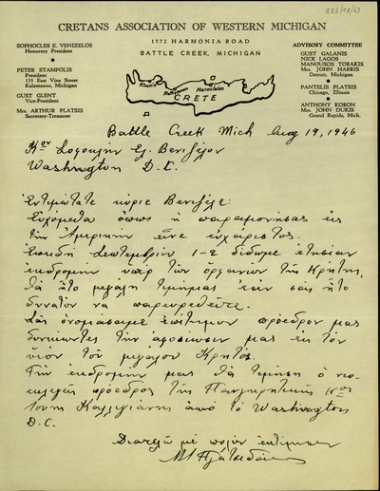 CRETANS ASSOCIATION OF WESTERN MICHIGAN
1772 HARMONIA ROAD
BATTLE CREEK, MICHIGAN
SOPHOCLES E. VENIZELOS
Honorary President
PETER STAMPOLIS
President
Kalamazoo, Michigan
GUST GLENT
Vice-President
Mrs. ARTHUR PLATSIS
Secretary-Treasurer
ADVISORY COMMITTEE
GUST GALANIS
NICK LAGOS
MANOUSOS TORAKIS
Mrs. JOHN HARRIS
Detroit, Michigan
PANTELIS PLATSIS
Chicago, Illinois
ANTHONY KORON
Mrs. JOHN DUKIS
Grand Rapids, Mich.
CRETE
Battle Creek Mich Aug 19, 1946
Κον Σοφοκλήν Ελ. Βενιζέλον
Washington D.C.
Εντιμώτατε κύριε Βενιζέλε:
Ευχόμεθα όπως η παραμονήσας εις
την Αμερικήν είνε ευχάριστος.
Επειδή Σεπτεμβρίου 1-2 δίδωμε ετησίαν
εκδρομήν υπέρ των ορφανών της Κρήτης,
θα ήτο μεγάλη τιμή μας εάν σας ήτο
δυνατόν να παρευρεθείτε.
Σας ονομάσαμε επίτιμον πρόεδρον μας
δεικνύοντες την αφοσίωσιν μας εις τον
υιόν του μεγάλου Κρητός.
Την εκδρομήν μας θα τιμήση ο νεο-
εκλεγείς πρόεδρος της Παγκρητικής Κος
Γιάννη Καλλιγιάννης από το Washington
D.C.
Διατελώ με πολλήν εκτίμησιν